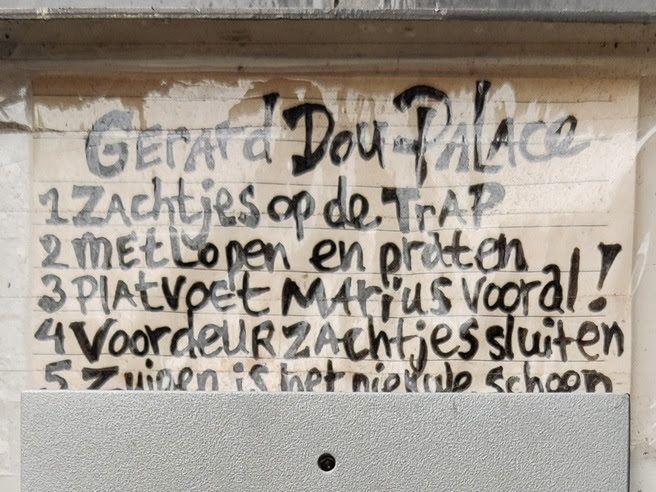 Gerard Dou-Palace
1 Zachtjes op de TrAP
2 met Lopen en praten
3 PlAtvoet MArius vooral!
4 VoordeuR ZAchtjes sluiten
5 Zuigen is het nieuwe schoon